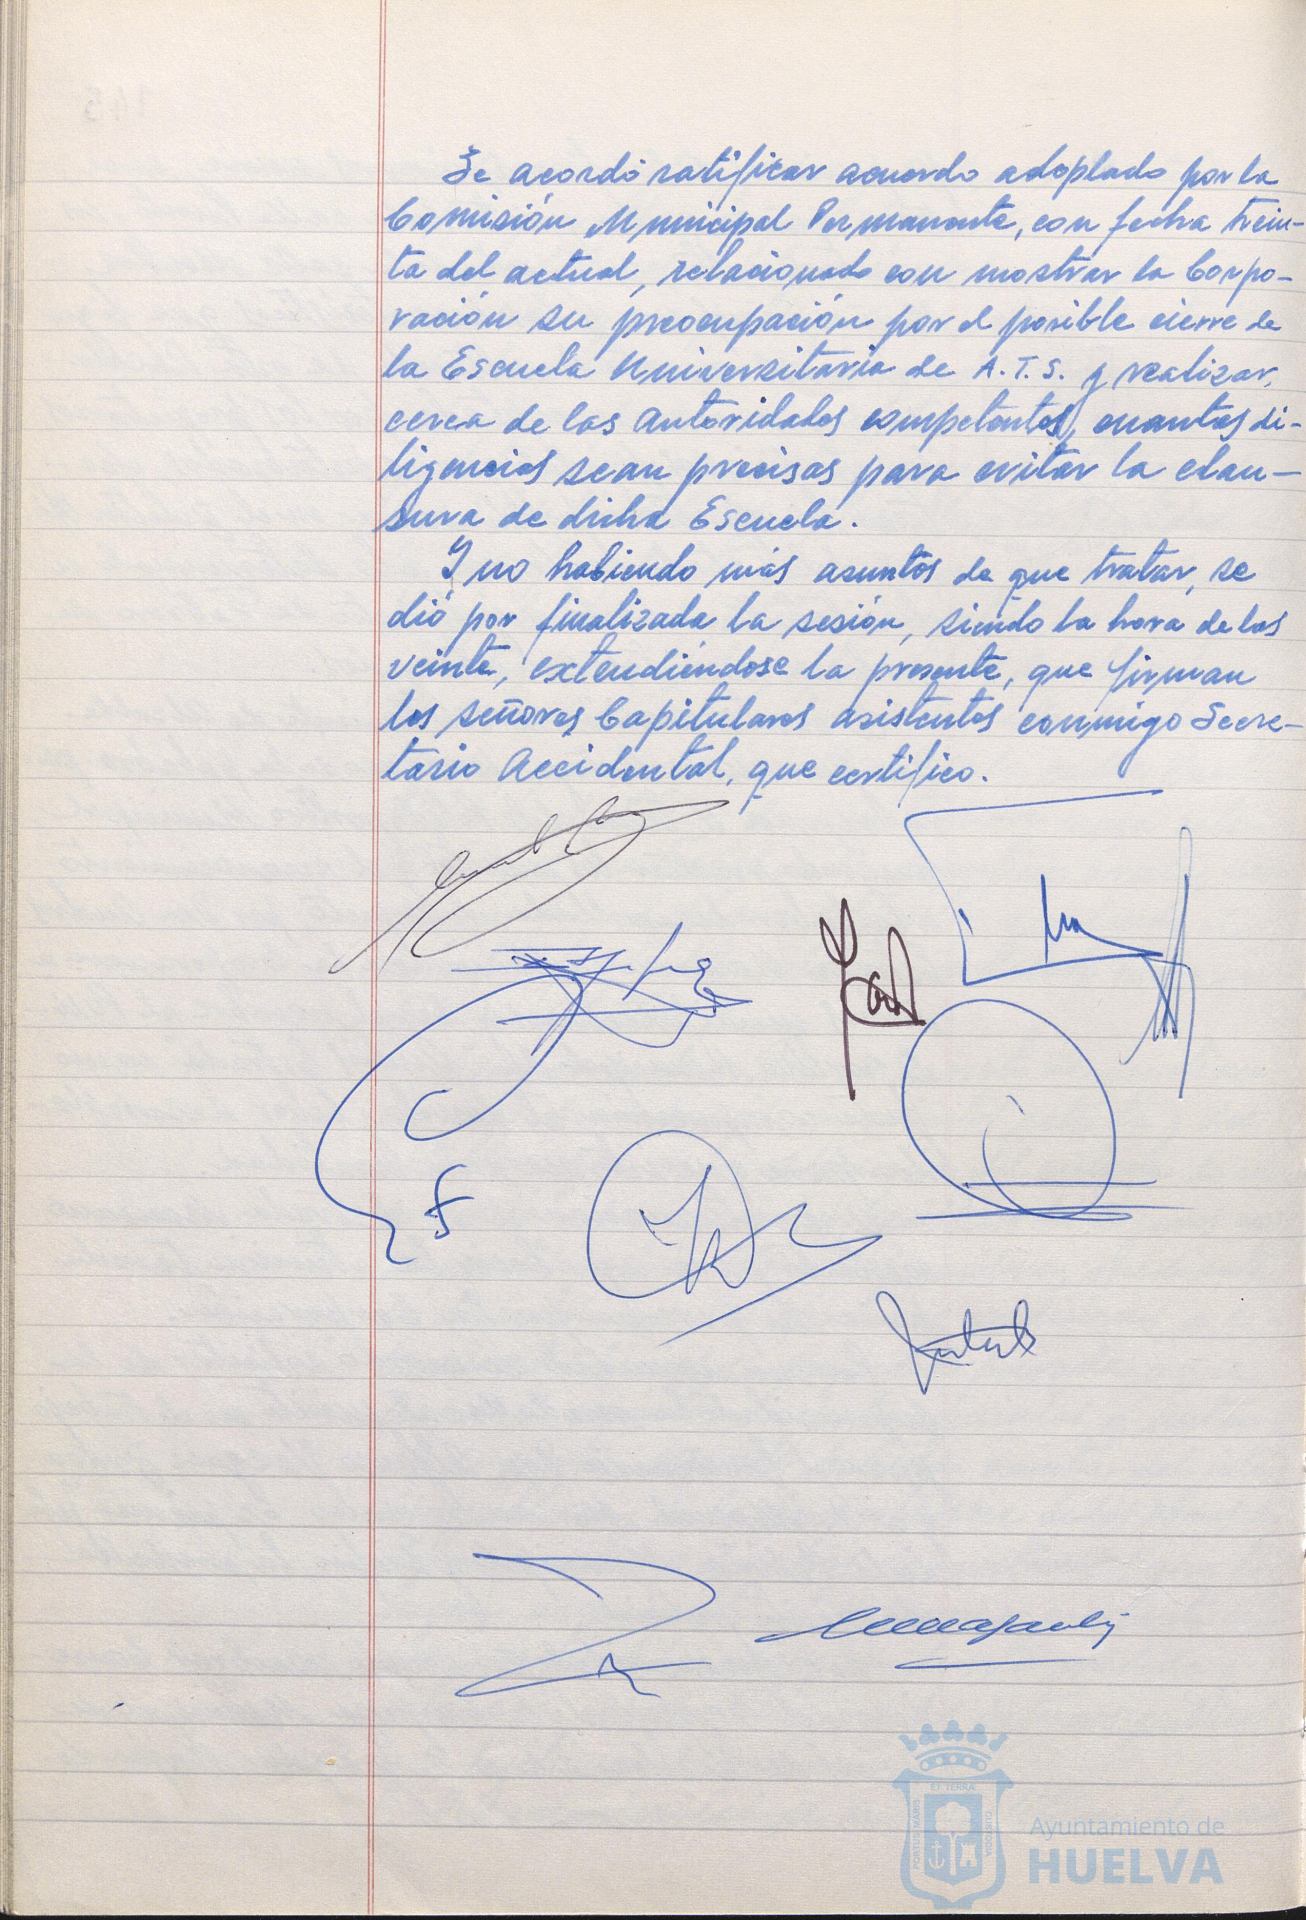 Se acordó ratificar acuerdo adoptado por la
Comisión Municipal Permanente, con fecha trein-
ta del actual, relacionado con mostrar la Corpo-
ración su preocupación por el posible cierre de
la Escuela Universitaria de A.T.S. y realizar,
cerca de las autoridades competentes, cuantas di-
ligencias sean precisas para evitar la clau-
sura de dicha Escuela.
Y no habiendo más asuntos de que tratar, se
dió por finalizada la sesión, siendo la hora de las
veinte, extendiéndose la presente, que firman
los señores Capitulares asistentes conmigo Secre-
tario Accidental, que certifico.
PORTUS MARIS
ET TERRAE
CUSTODIA
Ayuntamiento de
HUELVA